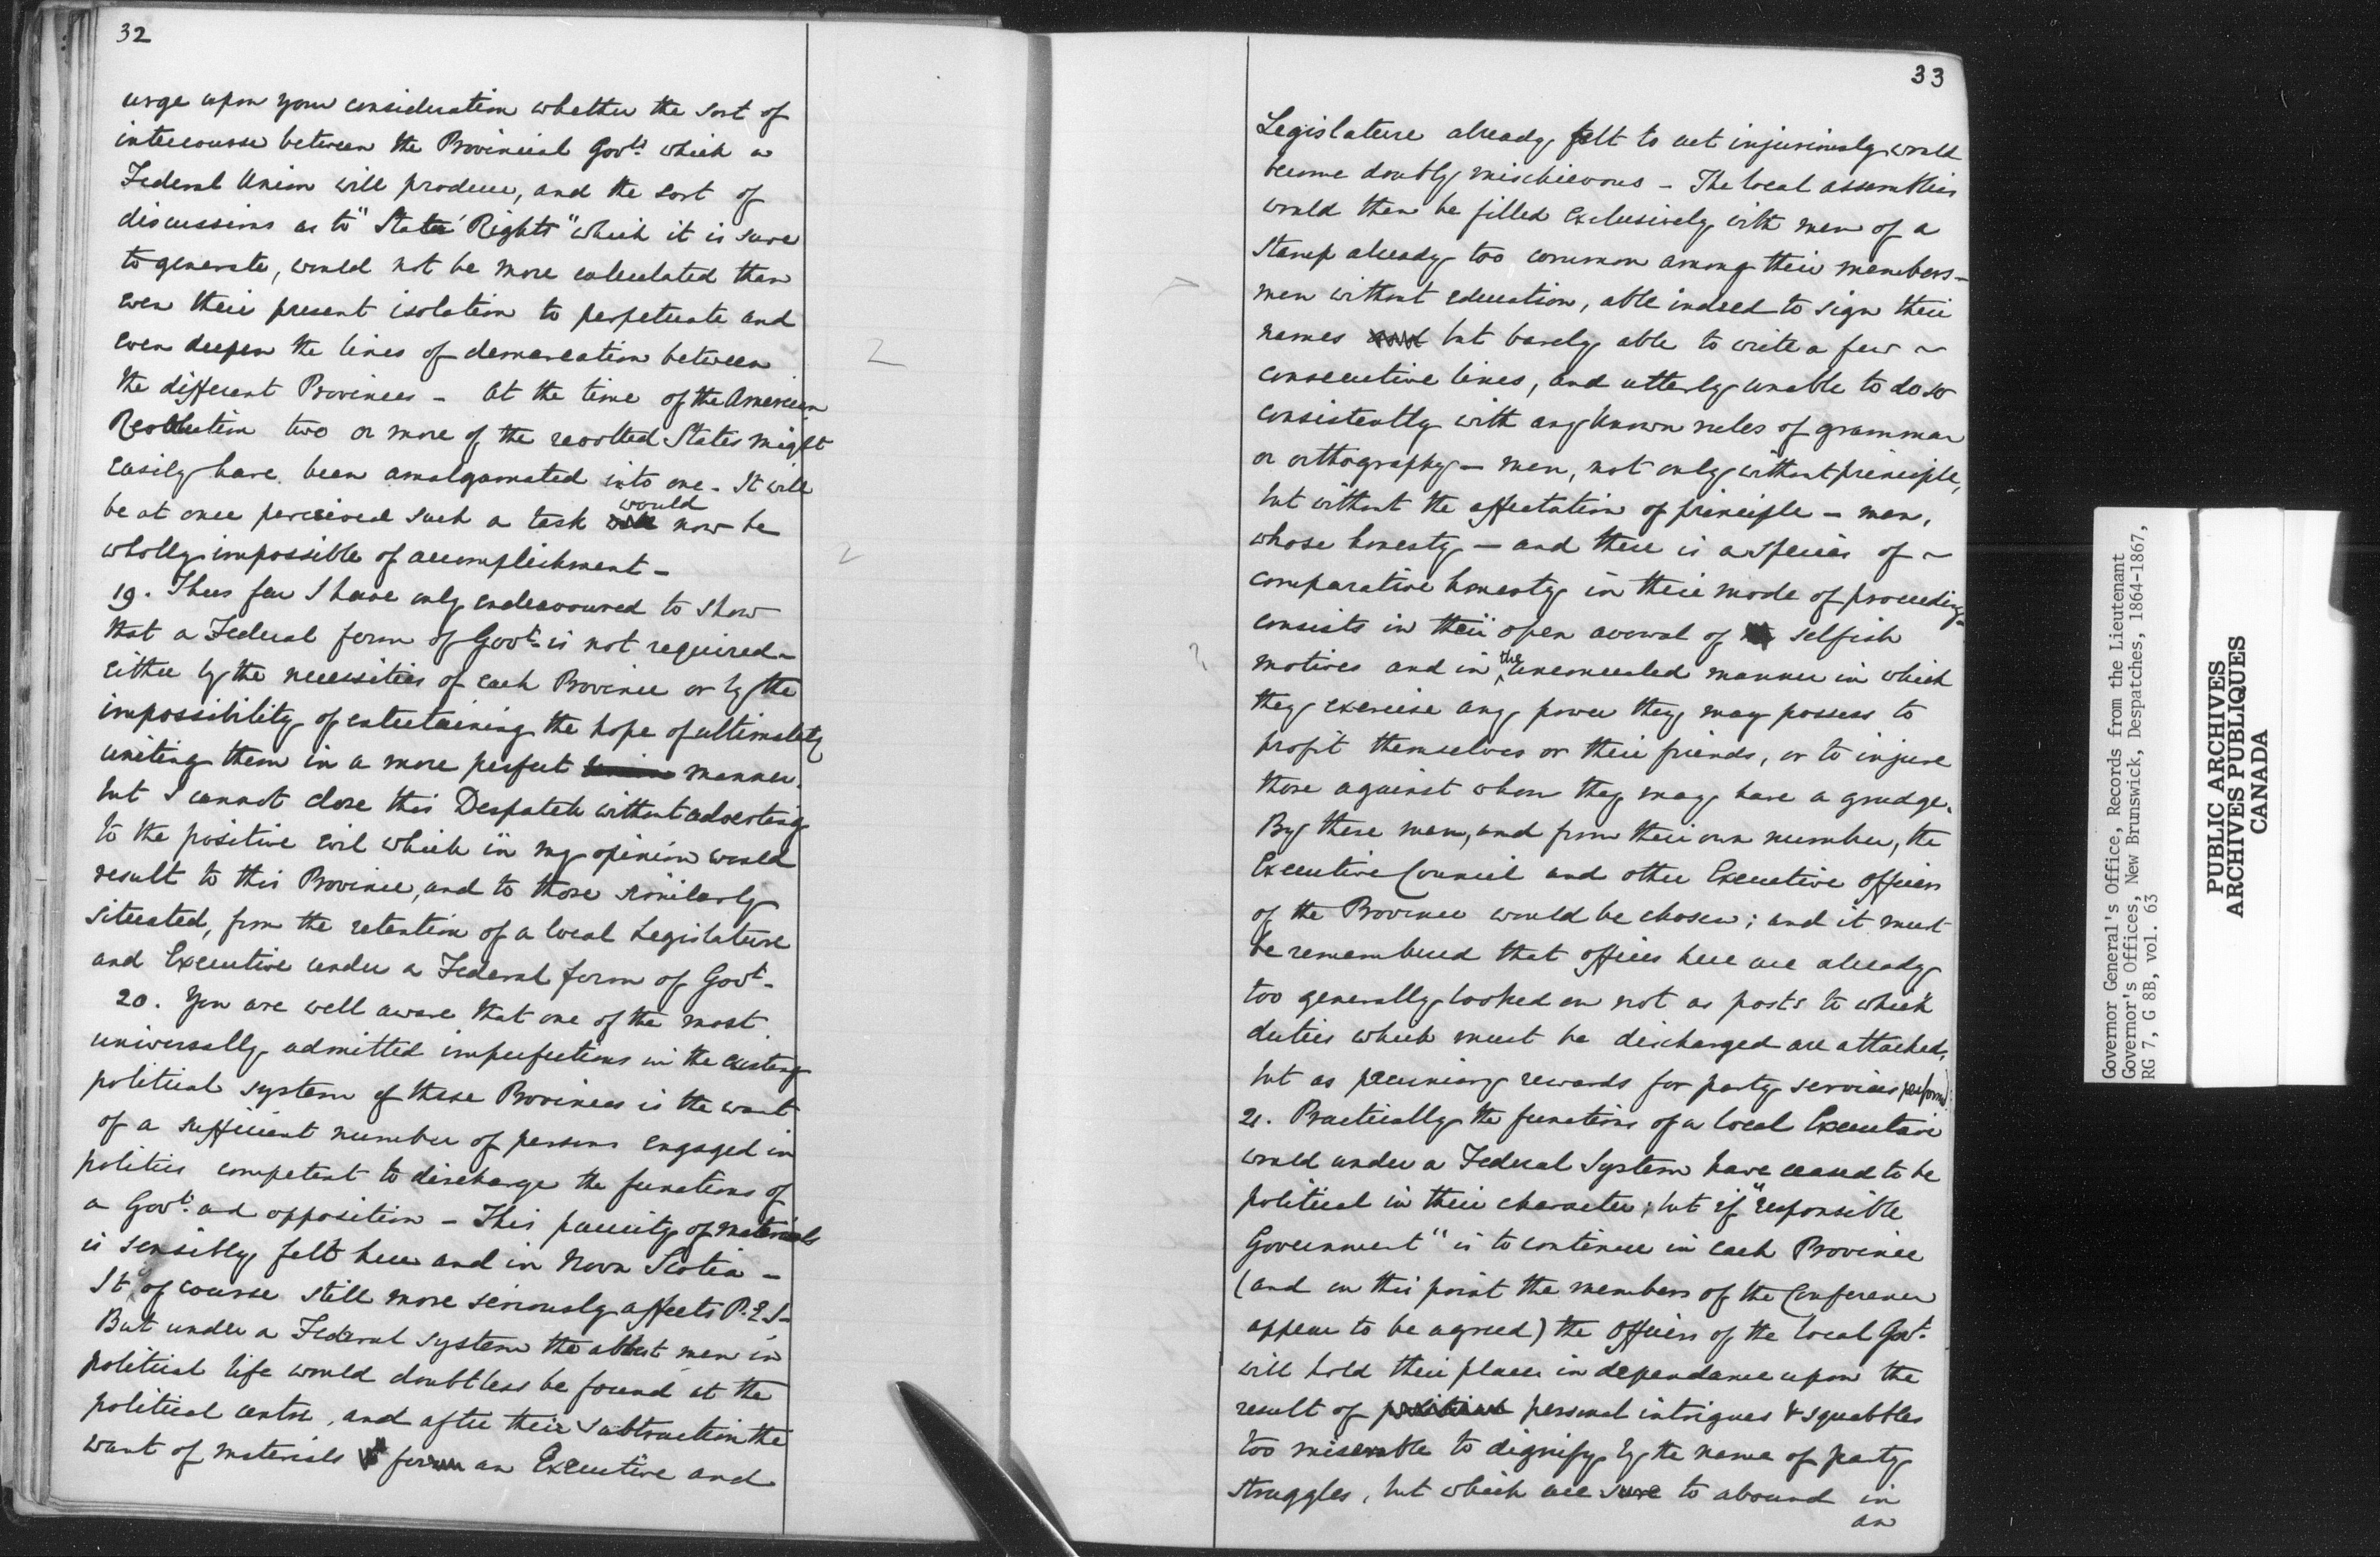 32
urge upon your consideration whether the sort of
intercourse between the Provincial Govts. which a
Federal Union will produce, and the sort of
discussions as to "States' Rights" which it is sure
to generate, would not be more calculated than
even their present isolation to perpetuate and
even deepen the lines of demarcation between
the different Provinces – At the time of the American
Revolution two or more of the revolted States might
easily have been amalgamated into one – It will
be at once perceived such a task would now be
wholly impossible of accomplishment –
19. Thus far I have only endeavoured to show
that a Federal form of Govt. is not required –
either by the necessities of each Province or by the
impossibility of entertaining the hope of ultimately
uniting them in a more perfect manner.
but I cannot close this Despatch without adverting
to the positive evil which in my opinion would
result to this Province, and to those similarly
situated, from the retention of a local Legislature
and Executive under a Federal form of Govt. –
20. You are well aware that one of the most
universally admitted imperfections in the existing
political system of these Provinces is the want
of a sufficient number of persons engaged in
politics competent to discharge the functions of
a Govt. and opposition – This paucity of materials
is sensibly felt here and in Nova Scotia –
It of course still more seriously affects P.E.I –
But under a Federal system the ablest men in
political life would doubtless be found at the
political centre, and after their subtraction the
want of materials to form an Executive and
33
Legislature already felt to act injuriously would
become doubly mischievous – The local assemblies
would then be filled exclusively with men of a
stamp already too common among their members –
men without education, able indeed to sign their
names but barely able to write a few ~
consecutive lines, and utterly unable to do so
consistently with any known rules of grammar
or orthography – men, not only without principle,
but without the affectation of principle – men,
whose honesty – and there is a species of ~
comparative honesty in their mode of proceeding –
consists in their open avowal of selfish
motives and in the unconcealed manner in which
they exercise any power they may possess to
profit themselves or their friends, or to injure
those against whom they may have a grudge.
By these men, and from their own number, the
Executive Council and other Executive officers
of the Province would be chosen; and it must
be remembered that offices here are already
too generally looked on not as posts to which
duties which must be discharged are attached,
but as pecuniary rewards for party services performd.
21. Practically the functions of a local Executive
would under a Federal System have ceased to be
political in their character; but if "responsible
Government" is to continue in each Province
(and on this point the members of the Conference
appear to be agreed) the Officers of the local Govt.
will hold their places in dependance upon the
result of personal intrigues & squabbles
too miserable to dignify by the name of party
struggles, but which are sure to abound in
an
Governor General's Office, Records from the Lieutenant
Governor's Offices, New Brunswick, Despatches, 1864-1867,
RG 7, G 8B, vol. 63
PUBLIC ARCHIVES
ARCHIVES PUBLIQUES
CANADA